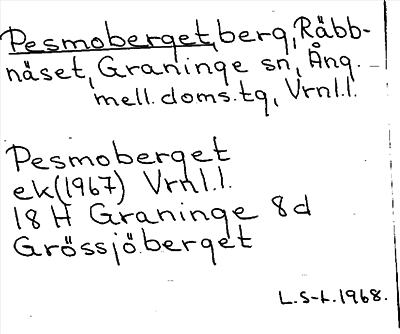 Pesmoberget, berg, Råbb-
näset, Graninge sn, Ång.
mell. doms. tg, Vrnl.l.
Pesmoberget
ek (1967) Vrnl.l.
18 H Graninge 8d
Grössjöberget
L.S-t. 1968.